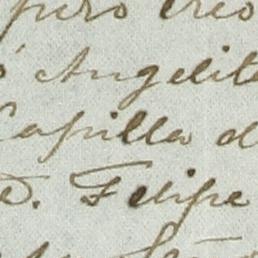 pero creo
Angelit
Capilla d
D. Felipe